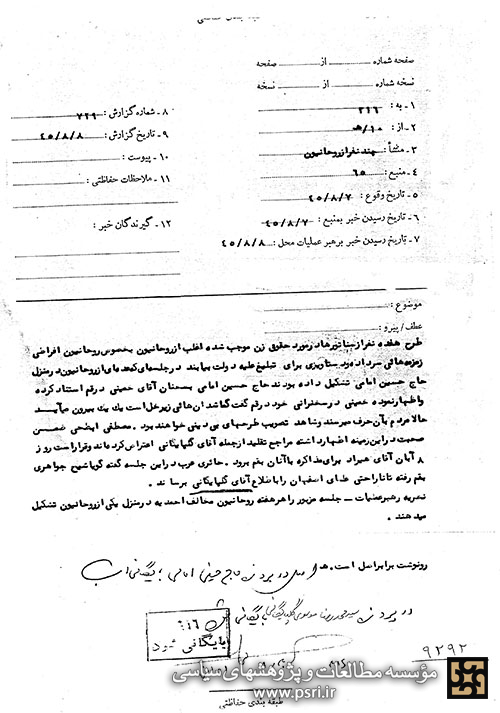 طبقه بندی حفاظتی
صفحه شماره از صفحه
نسخه شماره از نسخه
۱ - به : ۳۱۶
۲ - از : ۱۰/ه
۳ - منشأ : چند نفر از روحانیون
۴ - منبع : ۶۵
۵ - تاریخ وقوع : ۴۵/۸/۷
۶ - تاریخ رسیدن خبر بمنبع : ۴۵/۸/۷
۷ - تاریخ رسیدن خبر برهبر عملیات محل : ۴۵/۸/۸
۸ - شماره گزارش : ۷۲۹
۹ - تاریخ گزارش : ۴۵/۸/۸
۱۰ - پیوست :
۱۱ - ملاحظات حفاظتی :
۱۲ - گیرندگان خبر :
موضوع :
عطف / پیرو :
طرح هفده نفر از سناتورها در مورد حقوق زن موجب شده اغلب از روحانیون بخصوص روحانیون افراطی
زمزمه هائی سر داده و دستاویزی برای تبلیغ علیه دولت بیابند در جلسه ای که عده ای از روحانیون در منزل
حاج حسین امامی تشکیل داده بودند حاج حسین امامی بسخنان آقای خمینی در قم استناد کرده
و اظهار نموده خمینی در سخنرانی خود در قم گفت گناشتان هائی زیر خل است یک یک بیرون میآید
حالا مردم بآن حرف میرسند و شاهد تصویب طرحهای بی دینی خواهند بود . مصطفی ابطحی ضمن
صحبت در این زمینه اظهار داشته مراجع تقلید از جمله آقای گلپایگانی اعتراض کرده اند و قرار است روز
۸ آبان آقای هیراد برای مذاکره با آنان بقم برود . حائری عرب در این جلسه گفته گویا شیخ جواهری
بقم رفته تا ناراحتی علمای اصفهان را باطلاع آقای گلپایگانی برساند .
نظریه رهبر عملیات - جلسه مزبور را هر هفته روحانیون مخالف در منزل یکی از روحانیون تشکیل
میدهند .
رونوشت برابر اصل است . ه
اصل در پرونده حاج حسین امامی بایگانی است
در پرونده سید محمد رضا موسوی گلپایگانی بایگانی
۳۱۶
بایگانی شود
۹۲۹۲
مؤسسه مطالعات و پژوهشهای سیاسی
www.psri.ir
طبقه بندی حفاظتی